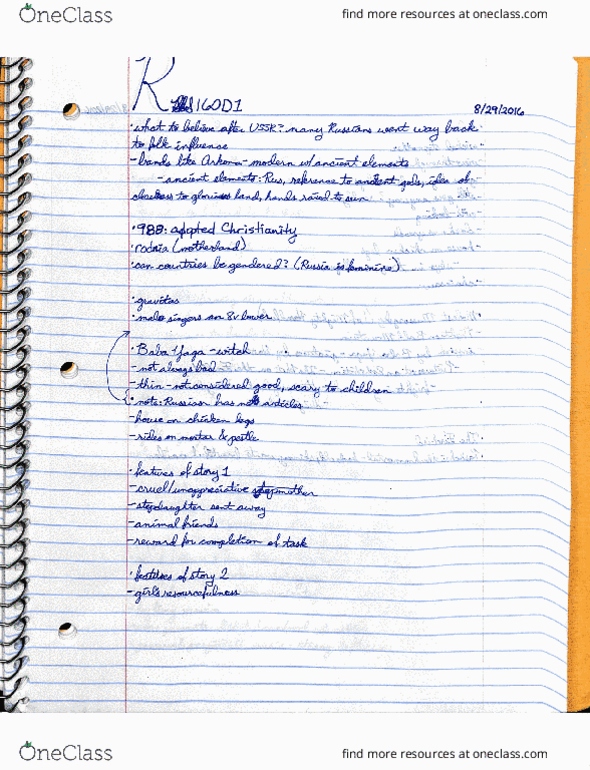 OneClass
find more resources at oneclass.com
R 160D1
8/29/2016
· what to believe after USSR? many Russians went way back
to folk influence
- bands like Arkona - modern w/ancient elements
- ancient elements: Rus, reference to ancient gods, idea of
closeness to glorious land, hands raised to sun
· 988: adopted Christianity
· rodnia (motherland)
· can countries be gendered? (Russia is feminine)
· gravitas
· male singers an 8v lower
· Baba Yaga - witch
- not always bad
- thin - not considered good, scary to children
· note: Russian has no articles
- house on chicken legs
- rides on mortar & pestle
· features of story 1
- cruel/unappreciative stepmother
- stepdaughter sent away
- animal friends
- reward for completion of task
· features of story 2
- girl's resourcefulness
OneClass
find more resources at oneclass.com